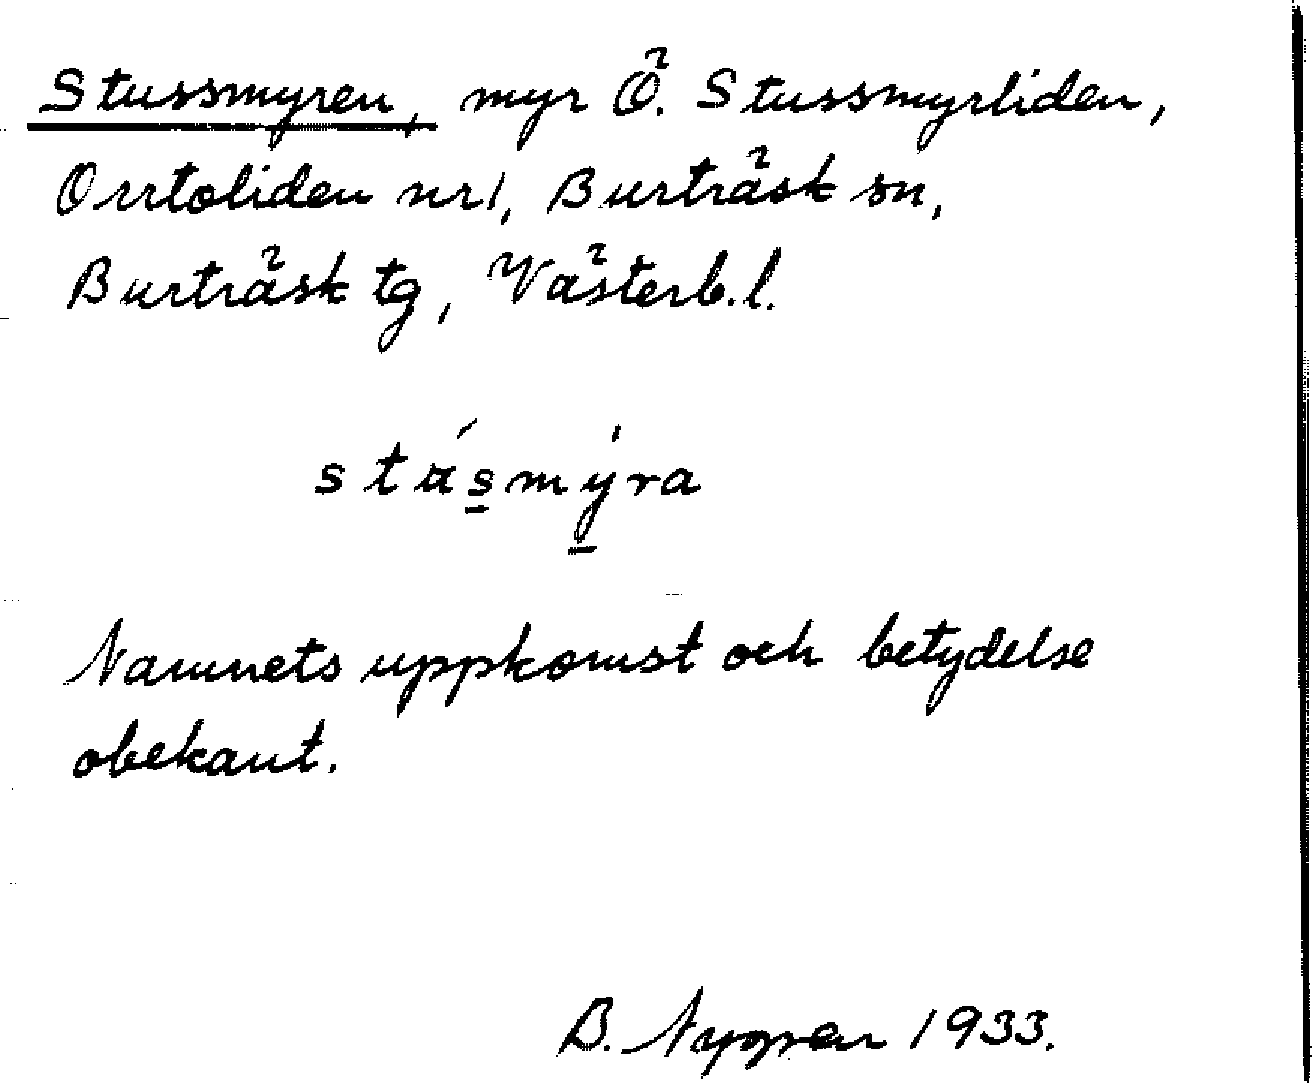 Stussmyren, myr Ö. Stussmyrliden,
Orrtoliden nr 1, Burträsk sn,
Burträsk tg, Västerb. l.
stásmýra
Namnets uppkomst och betydelse
obekant.
B. Nygren 1933.